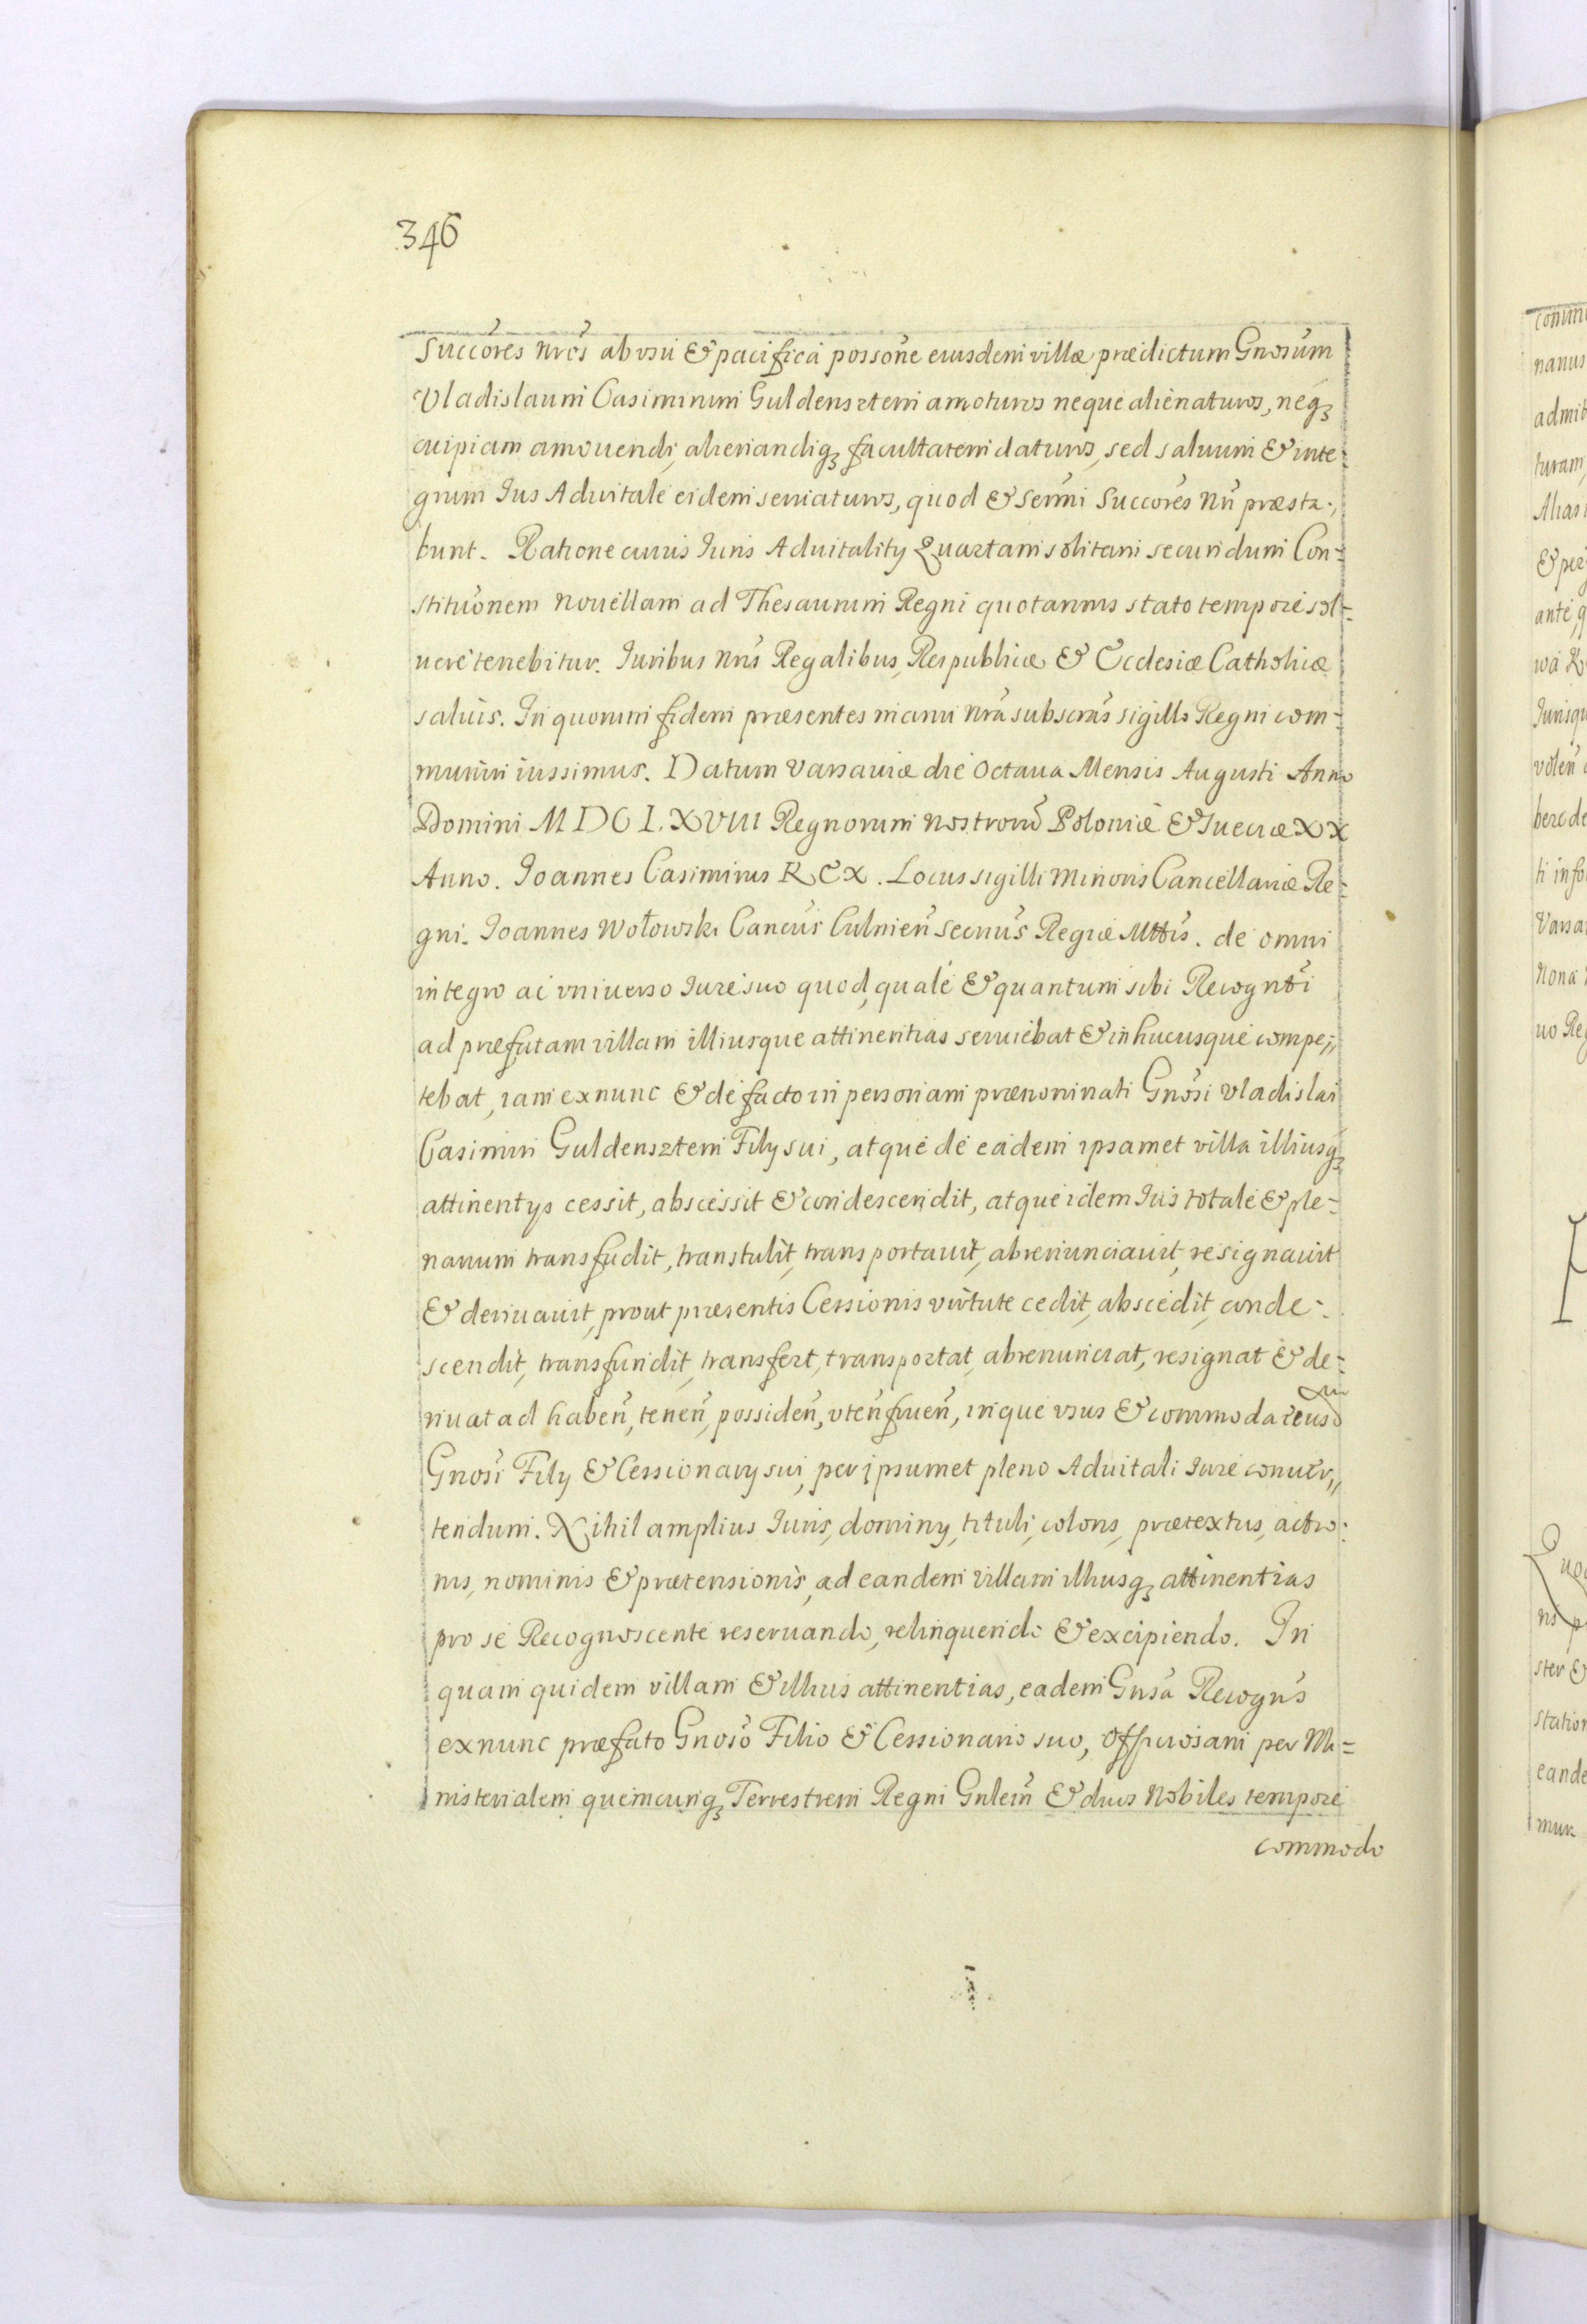 346
Succōres nrōs ab vsu & pacifica possōne eiusdem villæ prædictum Gnosūm
Vladislaum Casimirum Guldensztern amoturos neque alienaturos, neqȝ
cuipiam amouendi, alienandiqȝ facultatem daturos, sed saluum & inte-
grum Ius Aduitale eidem seruaturos, quod & Sermī Succorēs nrī præsta-
bunt. Ratione cuius Iuris Aduitalitÿ Quartam solitam secundum Con-
stituōnem nouellam ad Thesaurum Regni quotannis stato tempore sol-
uere tenebitur. Iuribus nrīs Regalibus, Reipublicæ & Ecclesiæ Catholicæ
saluis. In quorum fidem præsentes manu nrā subscrās sigillo Regni com-
muniri iussimus. Datum Varsauiæ die Octaua Mensis Augusti Anno
Domini MDCLXVIII Regnorum nostrorū Poloniæ & Sueciæ XX
Anno. Joannes Casimirus REX. Locus sigilli minoris Cancellariæ Re-
gni. Joannes Wołowski Cancūs Culmieñ Secriūs Regiæ Mttis. de omni
integro ac vniuerso Iure suo quod, quale & quantum sibi Recogntī
ad præfatam villam illiusque attinentias seruiebat & in hucusque compe-
tebat, iam exnunc & de facto in personam prænominati Gnosī Vladislai
Casimiri Guldensztern Filÿ sui, atque de eadem ipsamet villa illiusqȝ
attinentÿs cessit, abscessit & condescendit, atque idem Ius totale & ple-
narium transfudit, transtulit, transportauit, abrenunciauit, resignauit
& deriuauit, prout præsentis Cessionis virtute cedit, abscedit, conde-
scendit, transfundit, transfert, transportat, abrenunciat, resignat & de-
riuat ad habeñ, teneñ, possideñ, vteñ frueñ, inque vsus & commoda eiusd
Gnosī Filÿ & Cessionarÿ sui, per ipsummet pleno Aduitali Iure conuer-
tendum. Nihil amplius Iuris, dominÿ, tituli, coloris, prætextus, actio-
nis, nominis & prætensionis, ad eandem villam illiusqȝ attinentias
pro se Recognoscente reseruando, relinquendo & excipiendo. In
quam quidem villam & illius attinentias, eadem Gnsā Recognš
exnunc præfato Gnosō Filio & Cessionario suo, per Mi=
nisterialem quemcunqȝ Terrestrem Regni Gnlem̄ & duos Nobiles tempore
commodo